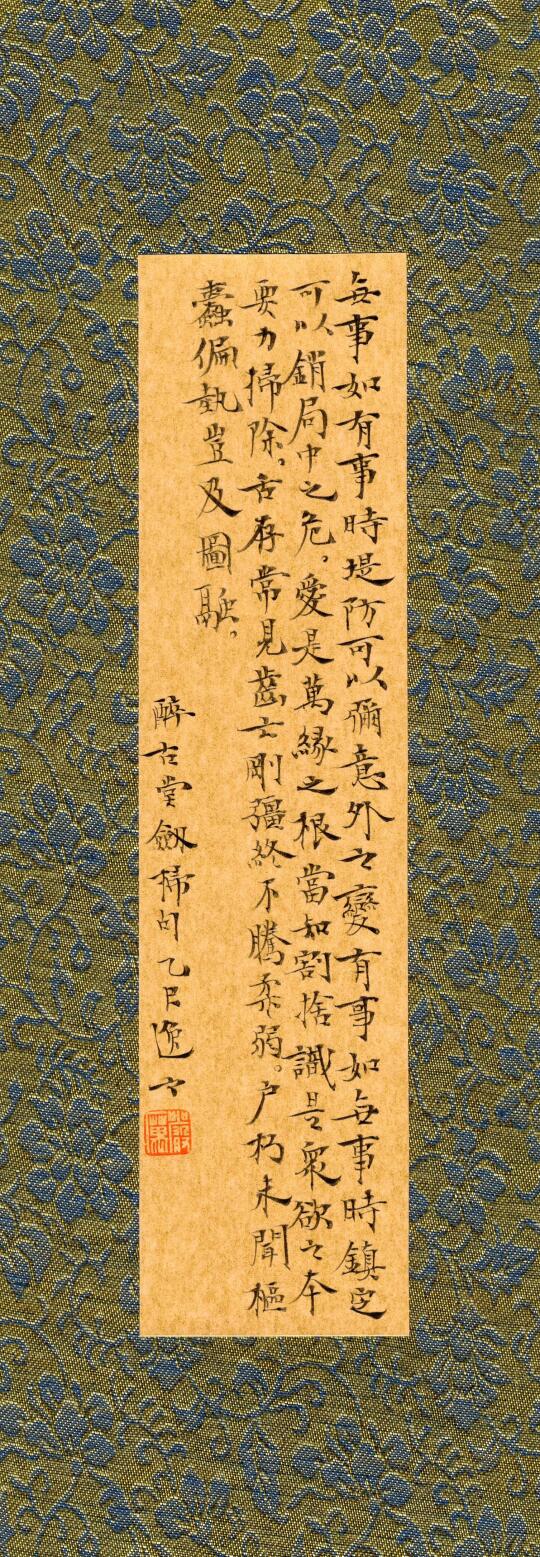 無事如有事時堤防可以彌意外之變有事如無事時鎮定
可以銷局中之危。愛是萬緣之根當知割捨識是衆欲之本
要力掃除。舌存常見齒亡剛彊終不勝柔弱。户朽未聞樞
蠹偏執豈及圓融。
醉古堂劔掃句乙巳逸之